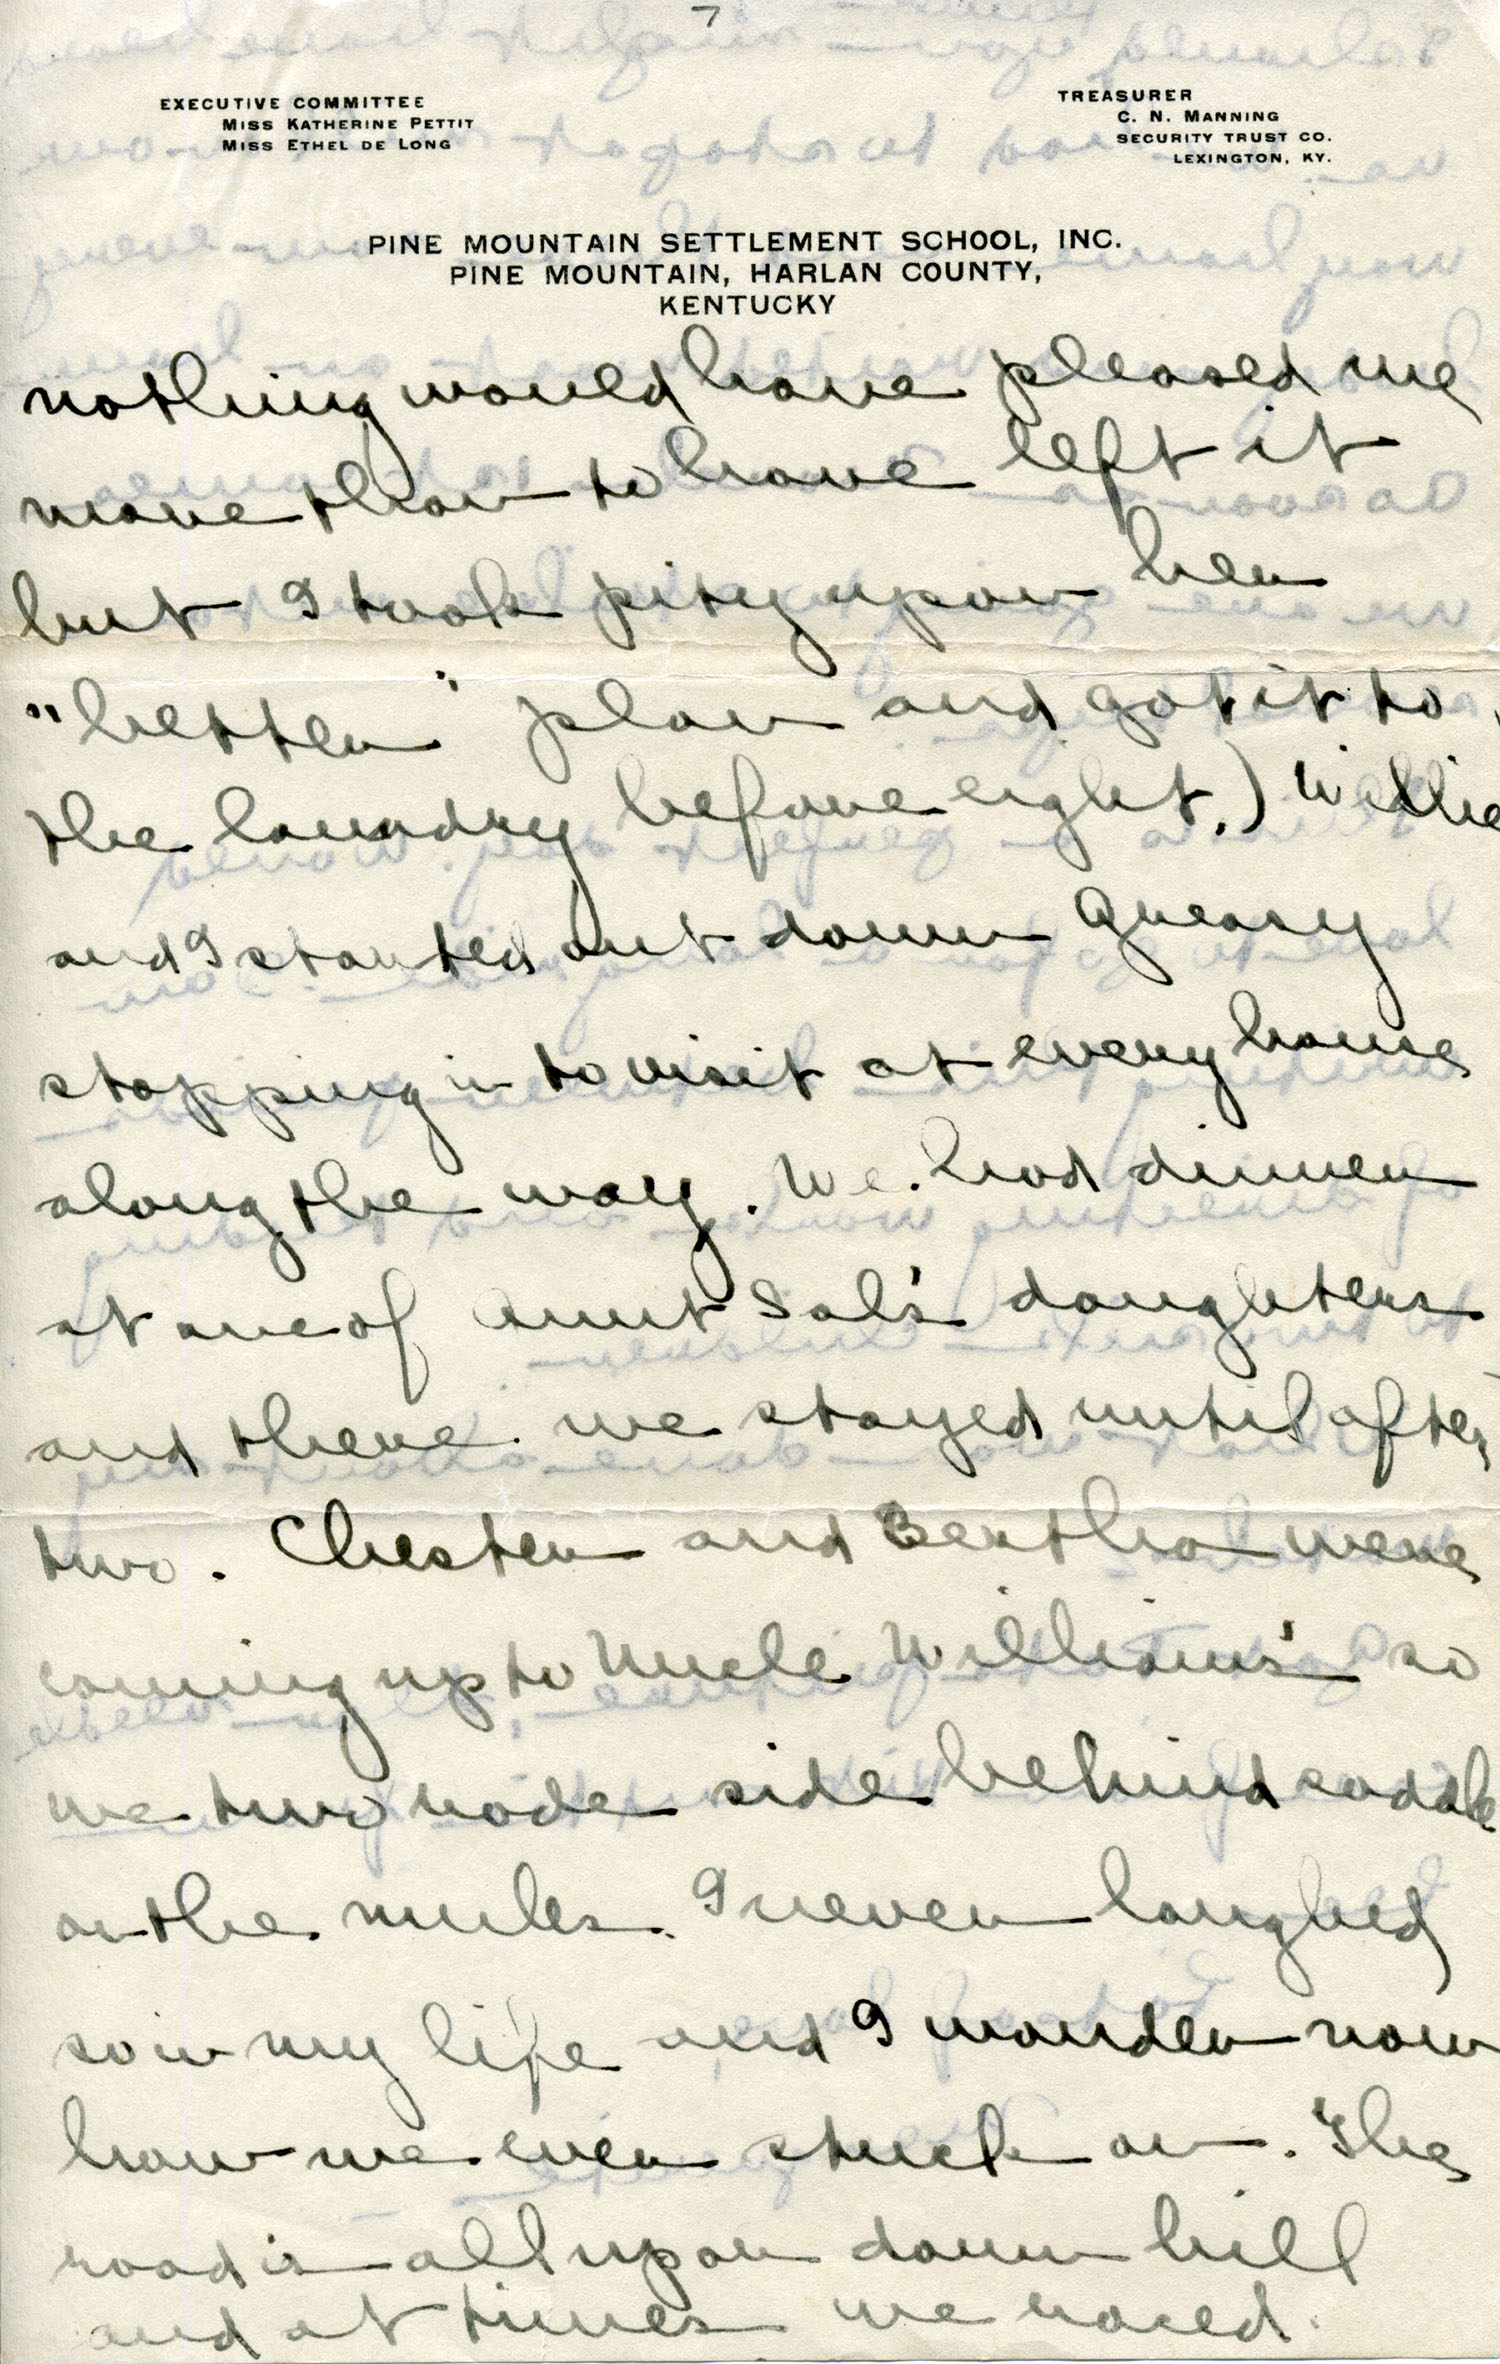 7
EXECUTIVE COMMITTEE
MISS KATHERINE PETTIT
MISS ETHEL DE LONG
TREASURER
C. N. MANNING
SECURITY TRUST CO.
LEXINGTON, KY.
PINE MOUNTAIN SETTLEMENT SCHOOL, INC.
PINE MOUNTAIN, HARLAN COUNTY,
KENTUCKY
nothing would have pleased me
more than to have left it
but I took pity upon her
"better" plan and got it to
the laundry before eight.) Willie
and I started out down Greasy
stopping in to visit at every house
along the way. We had dinner
at one of Aunt Sal's daughters
and there we stayed until after
two. Chester and Bertha were
coming up to Uncle William's so
we two rode side behind saddle
on the mules. I never laughed
so in my life and I wonder now
how we ever stuck on. The
road is all up or down hill
and at times we raced.